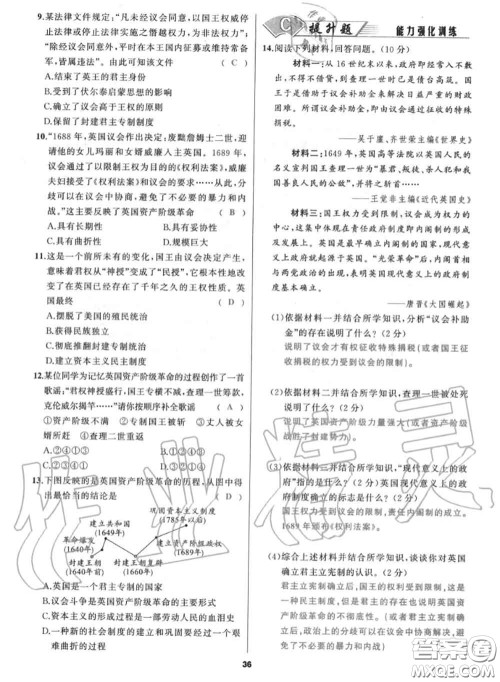 9.某法律文件规定：“凡未经议会同意，以国王权威停
止法律或停止法律实施之僭越权力，为非法权力”；
“除经议会同意外，平时在本王国内征募或维持常备
军，皆属违法”。由此可知该文件 （ C ）
A.结束了英王的君主身份
B.否决了伏尔泰启蒙思想的影响
C.确立了议会高于王权的原则
D.保留了封建君主专制制度
10.“1688年，英国议会作出决定：废黜詹姆士二世，迎
请他的女儿玛丽和女婿威廉入主英国。1689年，
议会通过了以限制王权为目的的《权利法案》，威廉
夫妇接受了《权利法案》和议会的要求……从此，分
歧可以在议会中协商，避免了不必要的暴力和内
战。”这主要反映了英国资产阶级革命 （ B ）
A.具有长期性 B.具有妥协性
C.具有曲折性 D.规模巨大
11.这是一个前所未有的变化，国王由议会决定产生，
意味着君权从“神授”变成了“民授”，它根本性地改
变了在英国已经存在了千年之久的王权性质。英国
最终 （ D ）
A.摆脱了美国的殖民统治
B.获得民族独立
C.彻底推翻封建专制制度
D.建立资本主义民主制度
12.某位同学为记忆英国资产阶级革命的过程创作了一首
歌谣：“君权神授盛行，国王议会起冲突，查理一世征苏款，
克伦威尔揭竿……”请你按顺序补全歌谣 （ A ）
①资产阶级不满 ②专制国王被斩 ③丈人被女
婿所赶 ④查理一世被赶
A.②④①③ B.②③④①
C.①②③④ D.④①②③
13.下图反映的是英国资产阶级革命的历程，从图中得
出最恰当的结论是 （ D ）
巩固资本主义制度
（1785年以后）
建立共和国
（1649年）
革命爆发
（1640年）
建立资产阶级政权
（1689年）
封建王朝
（1640年前）
封建王朝复辟
（1660年）
A.英国是一个君主专制的国家
B.议会斗争是英国资产阶级革命的主要形式
C.资本主义的形成过程是一部劳动人民的血泪史
D.一种新的社会制度的建立和巩固要经过一个很
艰难曲折的过程
C 提升题 能力强化训练
14.阅读下列材料，回答问题。（10分）
材料一：从16世纪末以来，政府即经常入不敷
出，不得不借债，到查理一世时已是债台高筑。国王
于是借助于议会补助金来解决日益严重的财政
困难。所以，会议补助金，即由议会通过征收的特殊
捐税。
——吴于廑、齐世荣主编《世界史》
材料二：1649年，英国高等法院以英国人民的
名义宣判国王查理一世为“暴君、叛徒、杀人犯和我
国善良人民的公敌”，并将之斩首……
——王觉非主编《近代英国史》
材料三：国王权力受到限制，议会成为权力的
中心，这集中体现在责任政府制度即内阁制的形成
及发展上。英国是最早确立内阁制的国家，现代意
义上的政府就是指内阁。“光荣革命”后，内阁首相
与两党政治的出现，表明英国现代意义上的政府制
度基本确定。
——唐晋《大国崛起》
（1）依据材料一并结合所学知识，分析“议会补助
金”的存在说明了什么？（2分）
说明了议会才有权征收特殊捐税（或者国王征
收捐税的权力受到议会的限制）。
（2）依据材料二并结合所学知识，查理一世被处死
说明了什么？（2分）
说明了英国资产阶级力量强大（或者资产阶级
战胜了封建势力）。
（3）依据材料三并结合所学知识，“现代意义上的政
府”指的是什么？（1分）英国现代意义上的政府
制度确立的标志是什么？（2分）
受议会限制的国王，责任内阁制的成立。
1689年颁布《权利法案》。
（4）综合上述材料并结合所学知识，谈谈你对英国
确立君主立宪制的认识。（3分）
君主立宪制下，国王的权利受到限制，一种民主
的制度逐渐确立；君主的存在，说明英国资产阶
级革命的不彻底性。（或者新兴资产阶级和新贵
族掌握了政权；分歧可以在议会中协商解决，避
免了不必要的暴力和内战）
36
作业精灵
答案圈